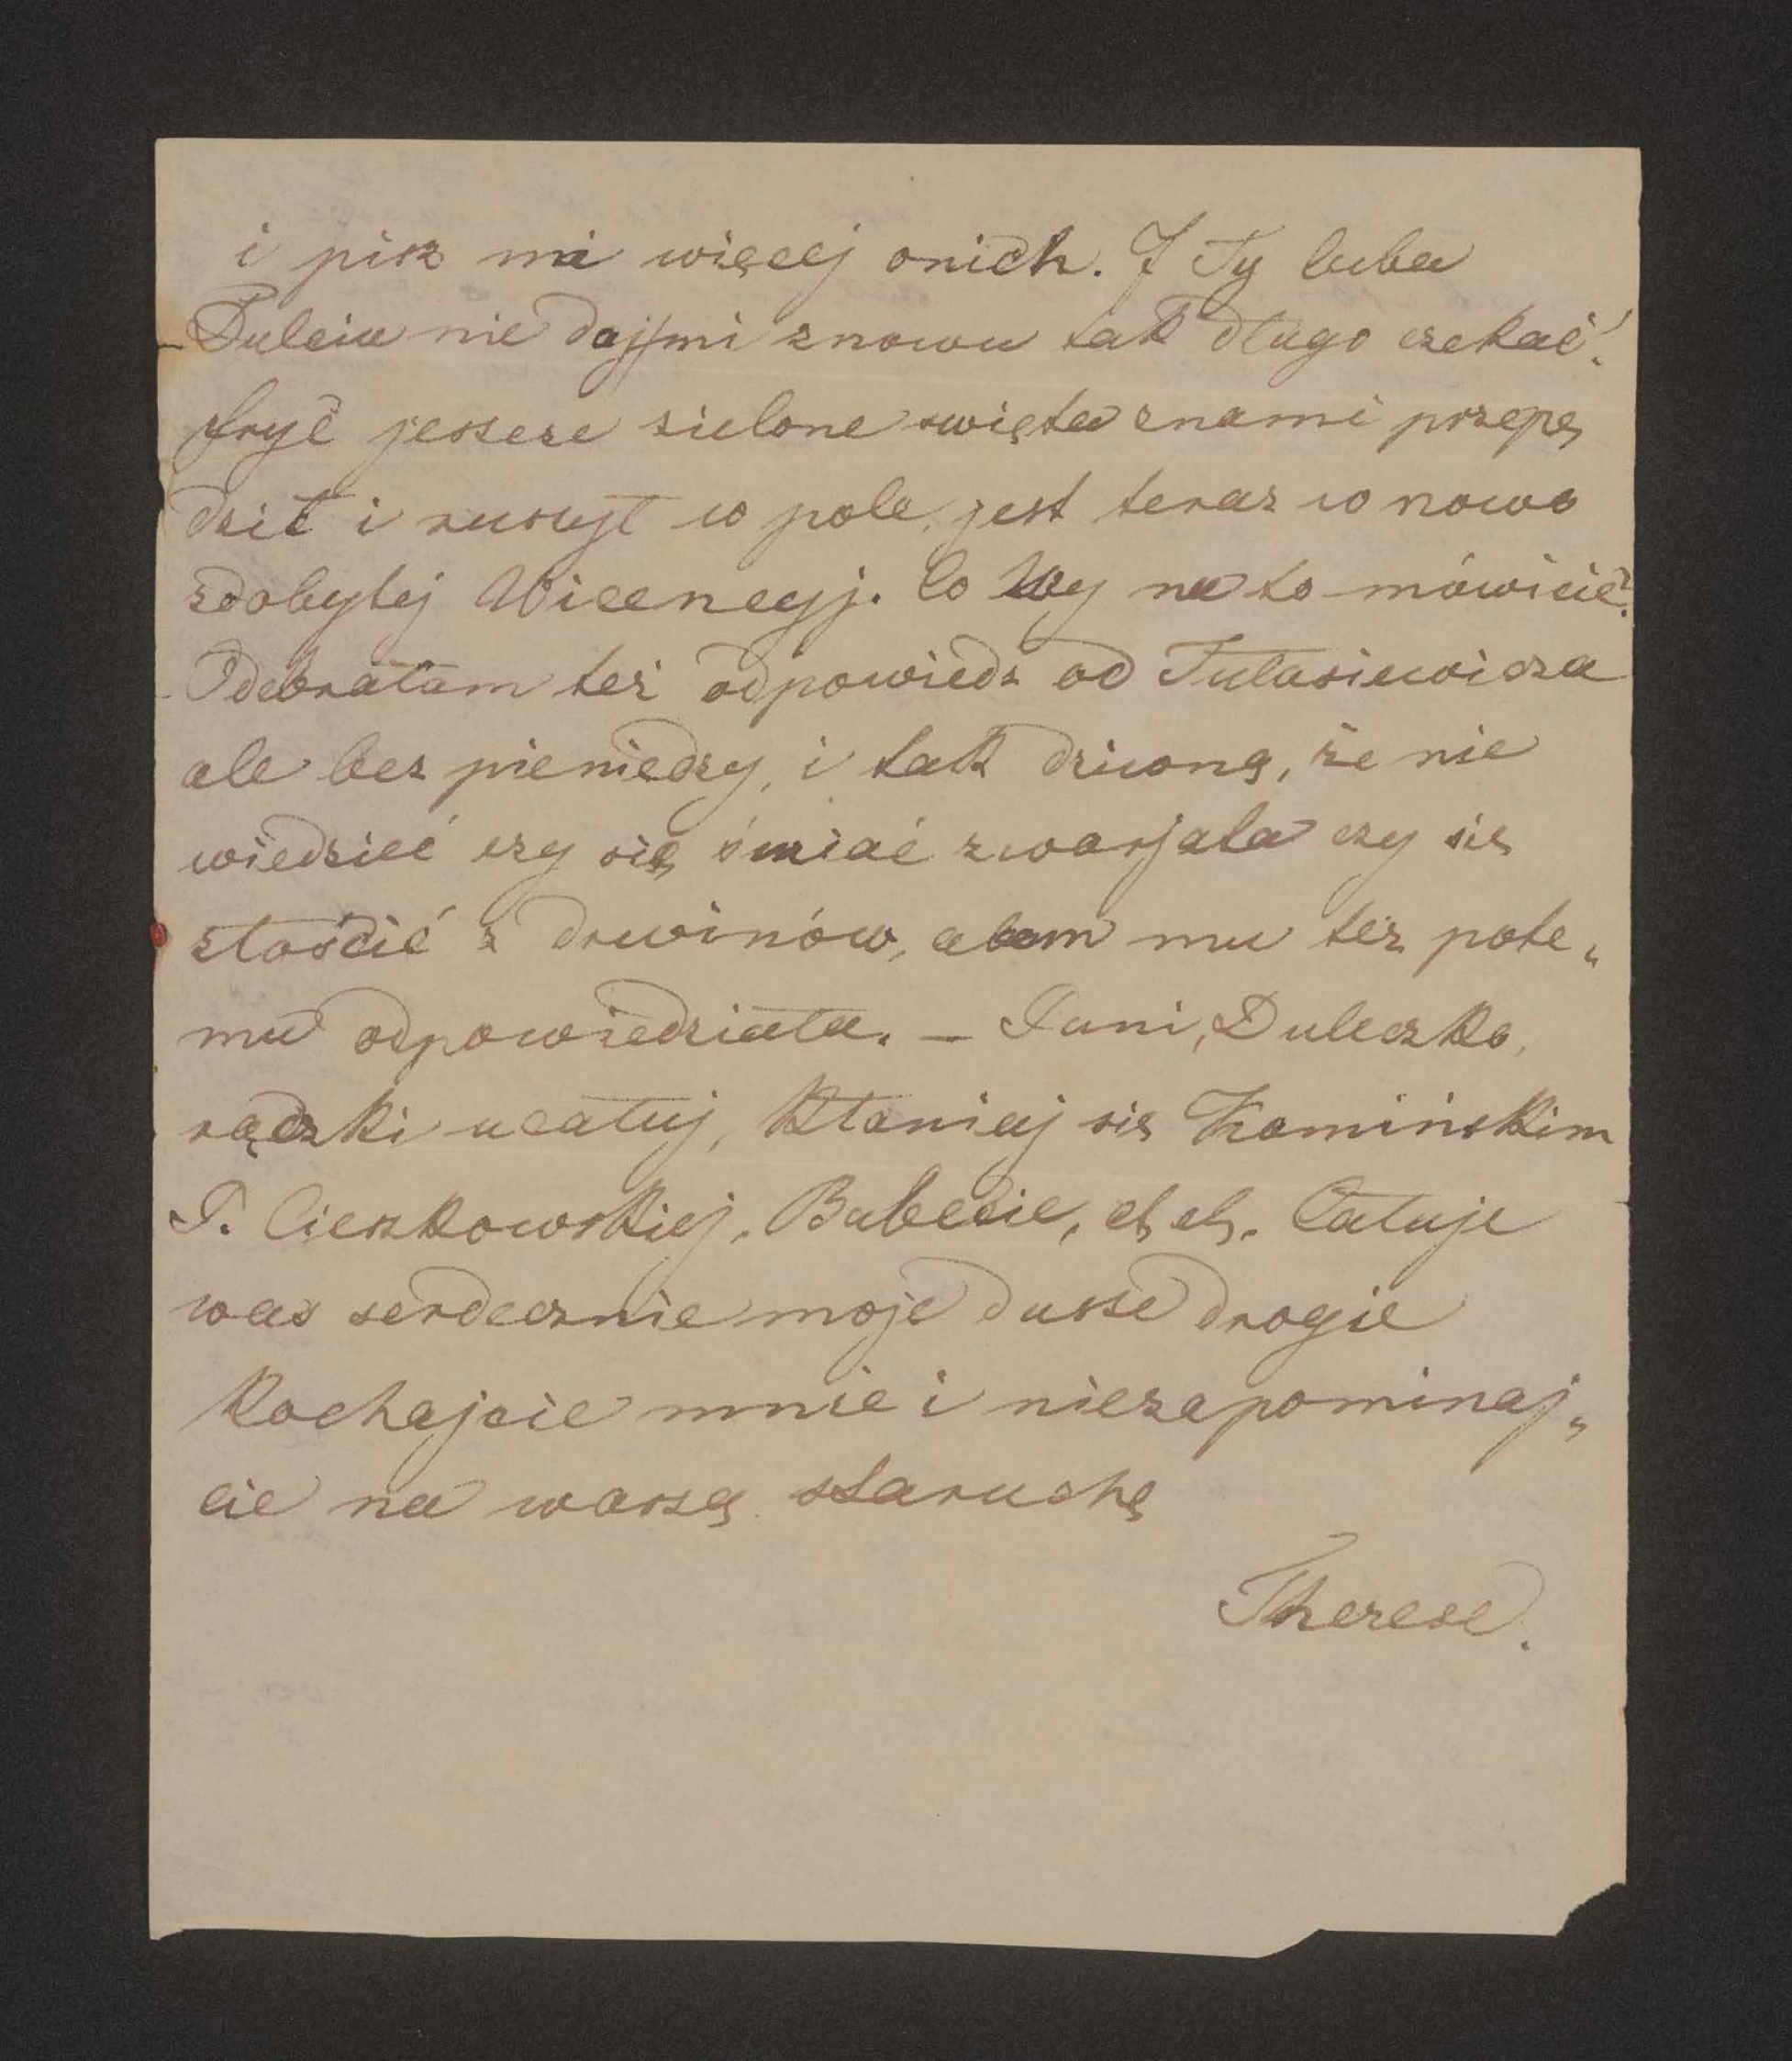 i pisz mi więcej onich. I Ty luba
Dulciu nie daj mi znowu tak długo czekać!
Fryc jeszcze zielone święta znami przepę„
dził i ruszył w pole, jest teraz w nowo
zdobytej Wicencyj. Co Wy na to mówicie?
Odebrałam też odpowiedz od Tułasiewicza
ale bez pieniedzy, i tak dziwną, że nie
wiedzieć czy się śmiać zwarjata czy się
złościć z drwinów, alem mu też pote„
mu odpowiedziała. — Pani, Duleczko,
rączki ucałuj, kłaniaj się Kamińskim
P. Cieszkowskiej, Babecie, et et. Całuje
was serdecznie moje dusze drogie
kochajcie mnie i niezapominaj„
cie na waszą staruchę
Therese.